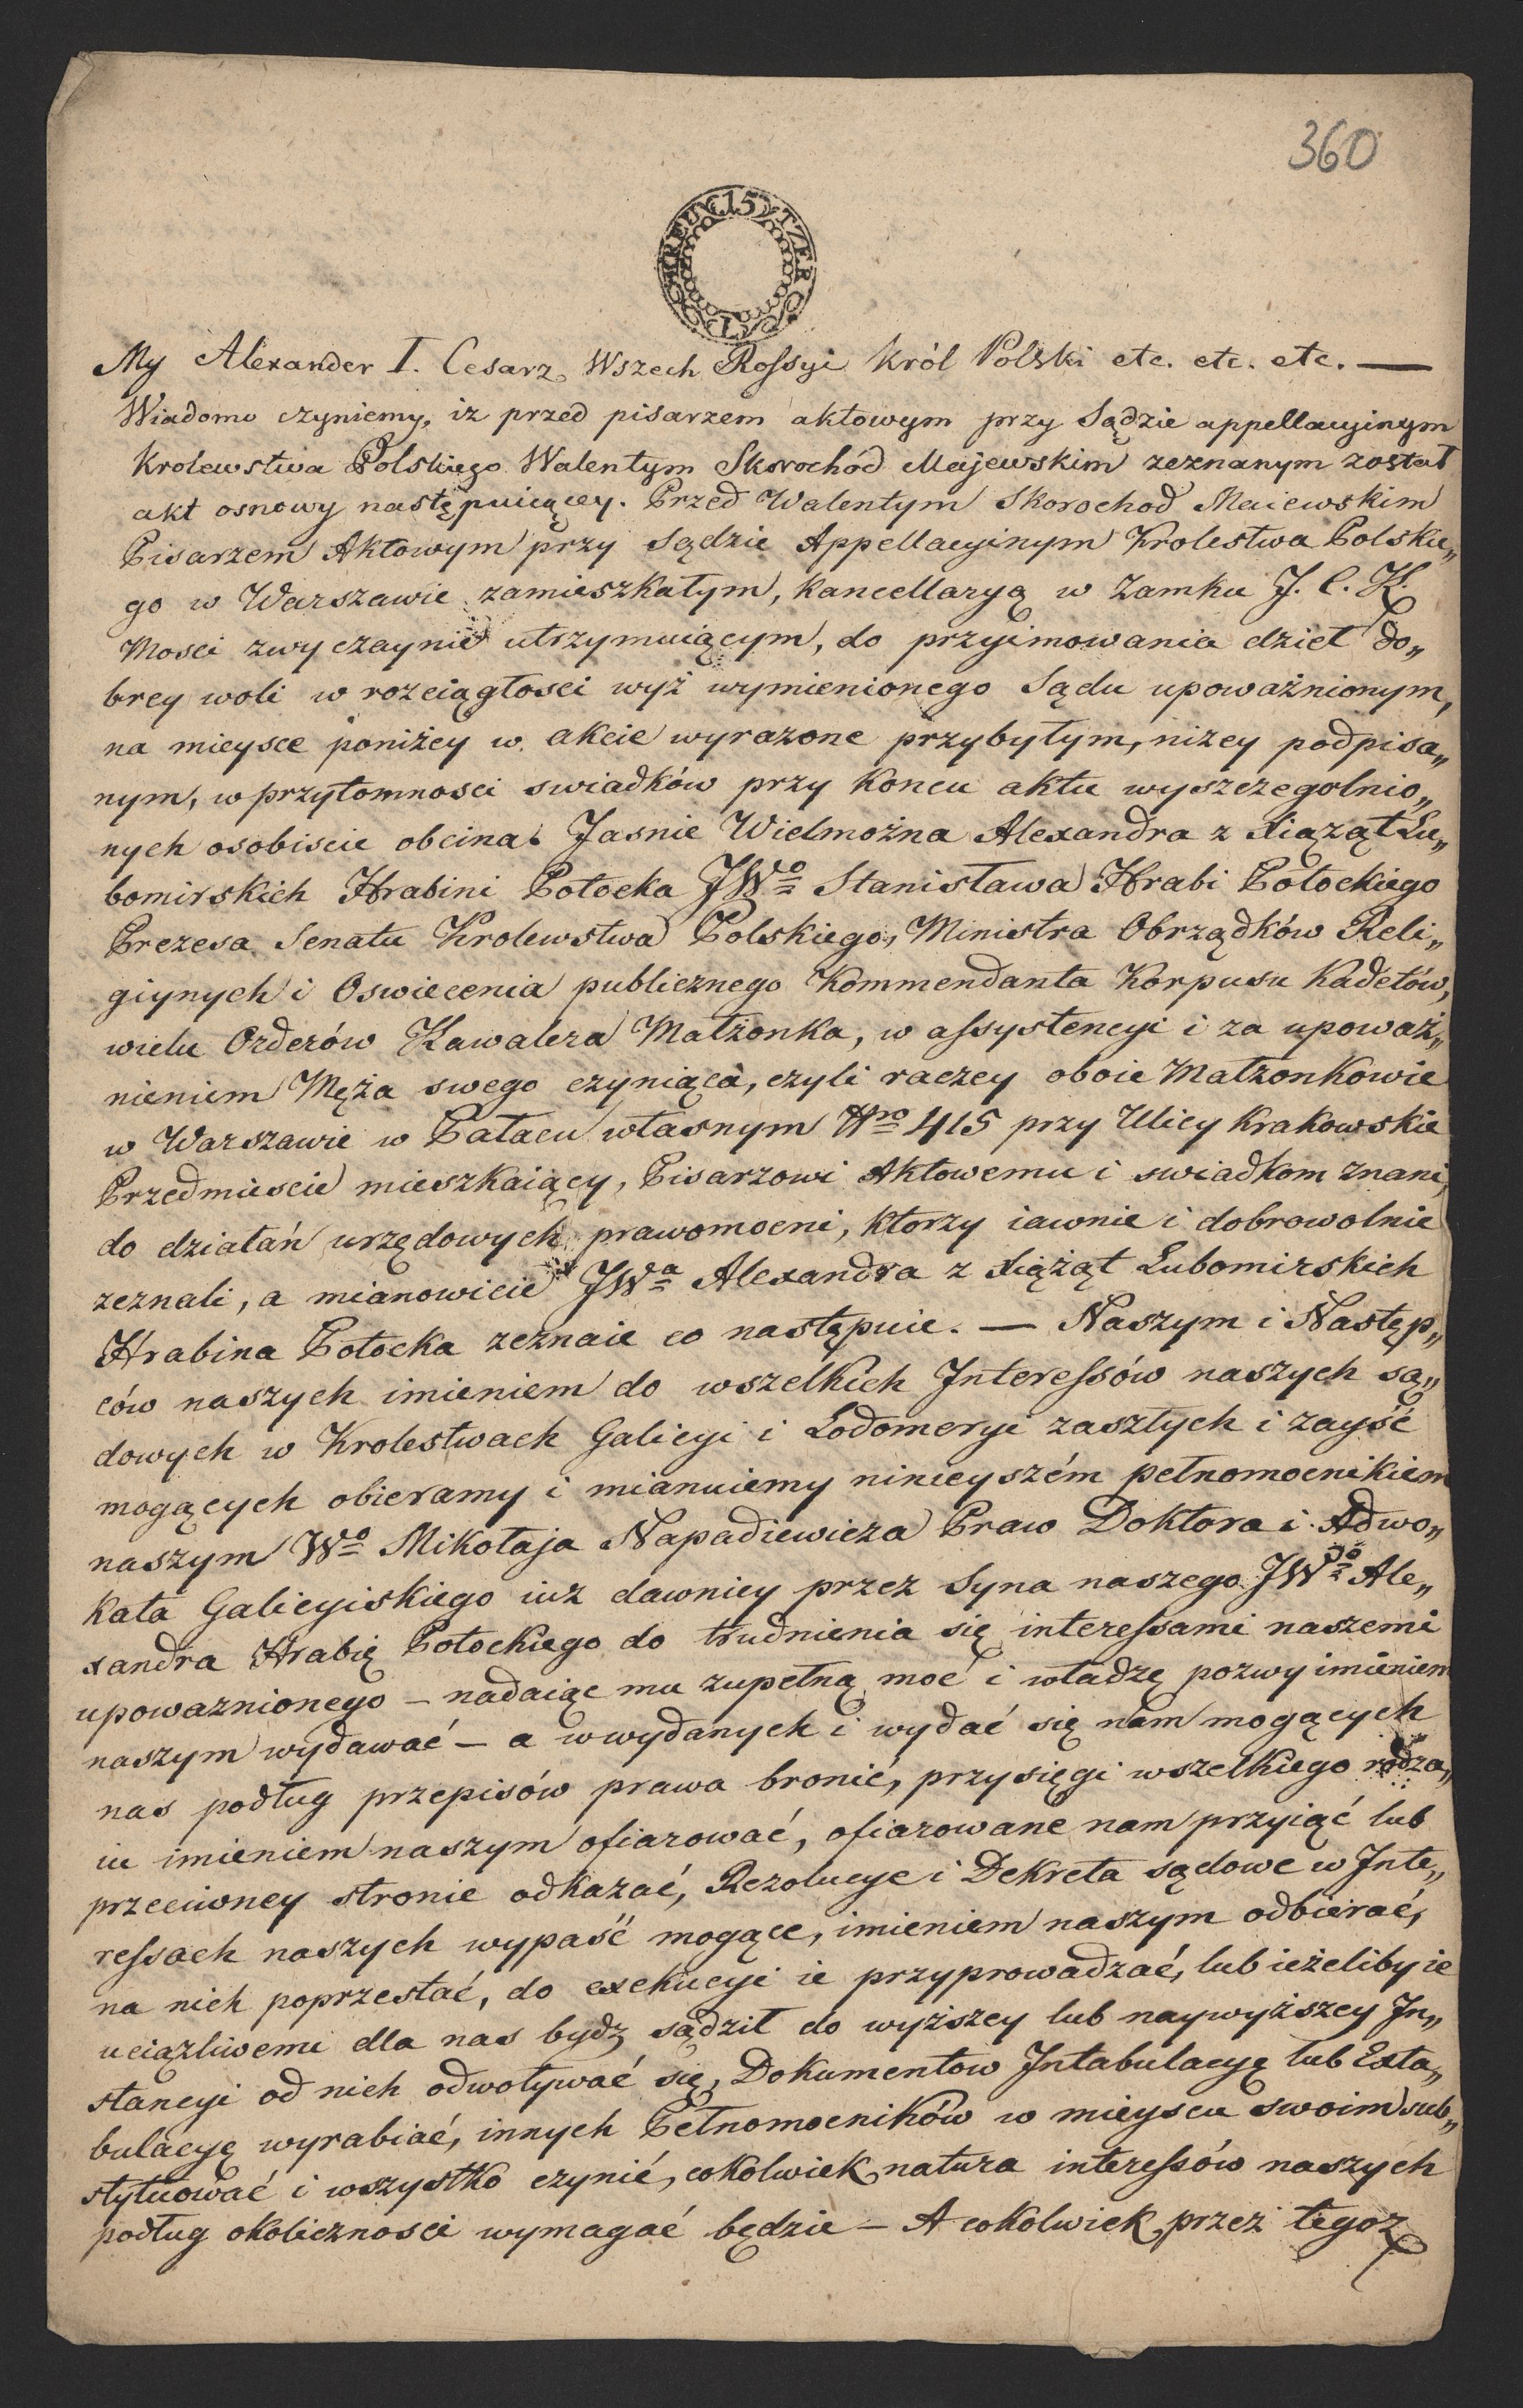 360
15 KREUTZER C. M.
My Alexander I. Cesarz Wszech Rossyi Król Polski etc. etc. etc. —
Wiadomo czyniemy, iz przed pisarzem aktowym przy Sądzie appellacyinym
Krolewstwa Polskiego Walentym Skorochód Majewskim zeznanym został
akt osnowy następuiącey. Przed Walentym Skorochod Maiewskim
Pisarzem Aktowym przy Sądzie Appellacyinym Krolestwa Polskie„
go w Warszawie zamieszkałym, Kancellaryą w Zamku J. C. K.
Mosci zwyczaynie utrzymuiącym, do przyimowania dzieł do„
brey woli w rozciągłosci wyż wymienionego Sądu upoważnionym,
na mieysce poniżey w akcie wyrażone przybyłym, niżey podpisa„
nym, w przytomnosci swiadków przy Koncu aktu wyszczegolnio„
nych osobiscie obcina. Jasnie Wielmożna Alexandra z Xiążąt Lu„
bomirskich Hrabini Potocka JWo Stanisława Hrabi Potockiego
Prezesa Senatu Krolewstwa Polskiego, Ministra Obrządków Reli„
giynych i Oswiecenia publicznego Kommendanta Korpusu Kadetów,
wielu Orderów Kawalera Małżonka, w assystencyi i za upoważ„
nieniem Męża swego czyniąca, czyli raczey oboie Małżonkowie
w Warszawie w Pałacu własnym Nro 415 przy Ulicy Krakowskie
Przedmiescie mieszkaiący, Pisarzowi Aktowemu i swiadkom znani,
do działań urzędowych prawomocni, ktorzy iawnie i dobrowolnie
zeznali, a mianowicie JWa Alexandra z Xiążąt Lubomirskich
Hrabina Potocka zeznaie co następuie. — Naszym i Następ„
ców naszych imieniem do wszelkich Interessów naszych są„
dowych w Krolestwach Galicyi i Lodomeryi zaszłych i zayść
mogących obieramy i mianuiemy ninieyszém pełnomocnikiem
naszym Wo Mikołaja Napadiewicza Praw Doktora i Adwo„
kata Galicyiskiego iuż dawniey przez Syna naszego JWo Ale„
xandra Hrabię Potockiego do trudnienia się interessami naszemi
upoważnionego – nadaiąc mu zupełną moc i władzę pozwy imieniem
naszym wydawać – a w wydanych i wydać się nam mogących
nas podług przepisów prawa bronić, przysięgi wszelkiego rodza„
iu imieniem naszym ofiarować, ofiarowane nam przyiąć lub
przeciwney stronie odkazać, Rezolucye i Dekreta sądowe w Inte„
ressach naszych wypaść mogące, imieniem naszym odbierać,
na nich poprzestać, do exekucyi ie przyprowadzać, lub ieżeliby ie
uciążliwemi dla nas bydź sądził do wyższey lub naywyższey In„
stancyi od nich odwoływać się, Dokumentow Intabulacyę lub Exta„
bulacyę wyrabiać, innych Pełnomocników w mieyscu swoim sub„
stytuować i wszystko czynić, cokolwiek natura interessów naszych
podług okolicznosci wymagać będzie – A cokolwiek przez tegoż